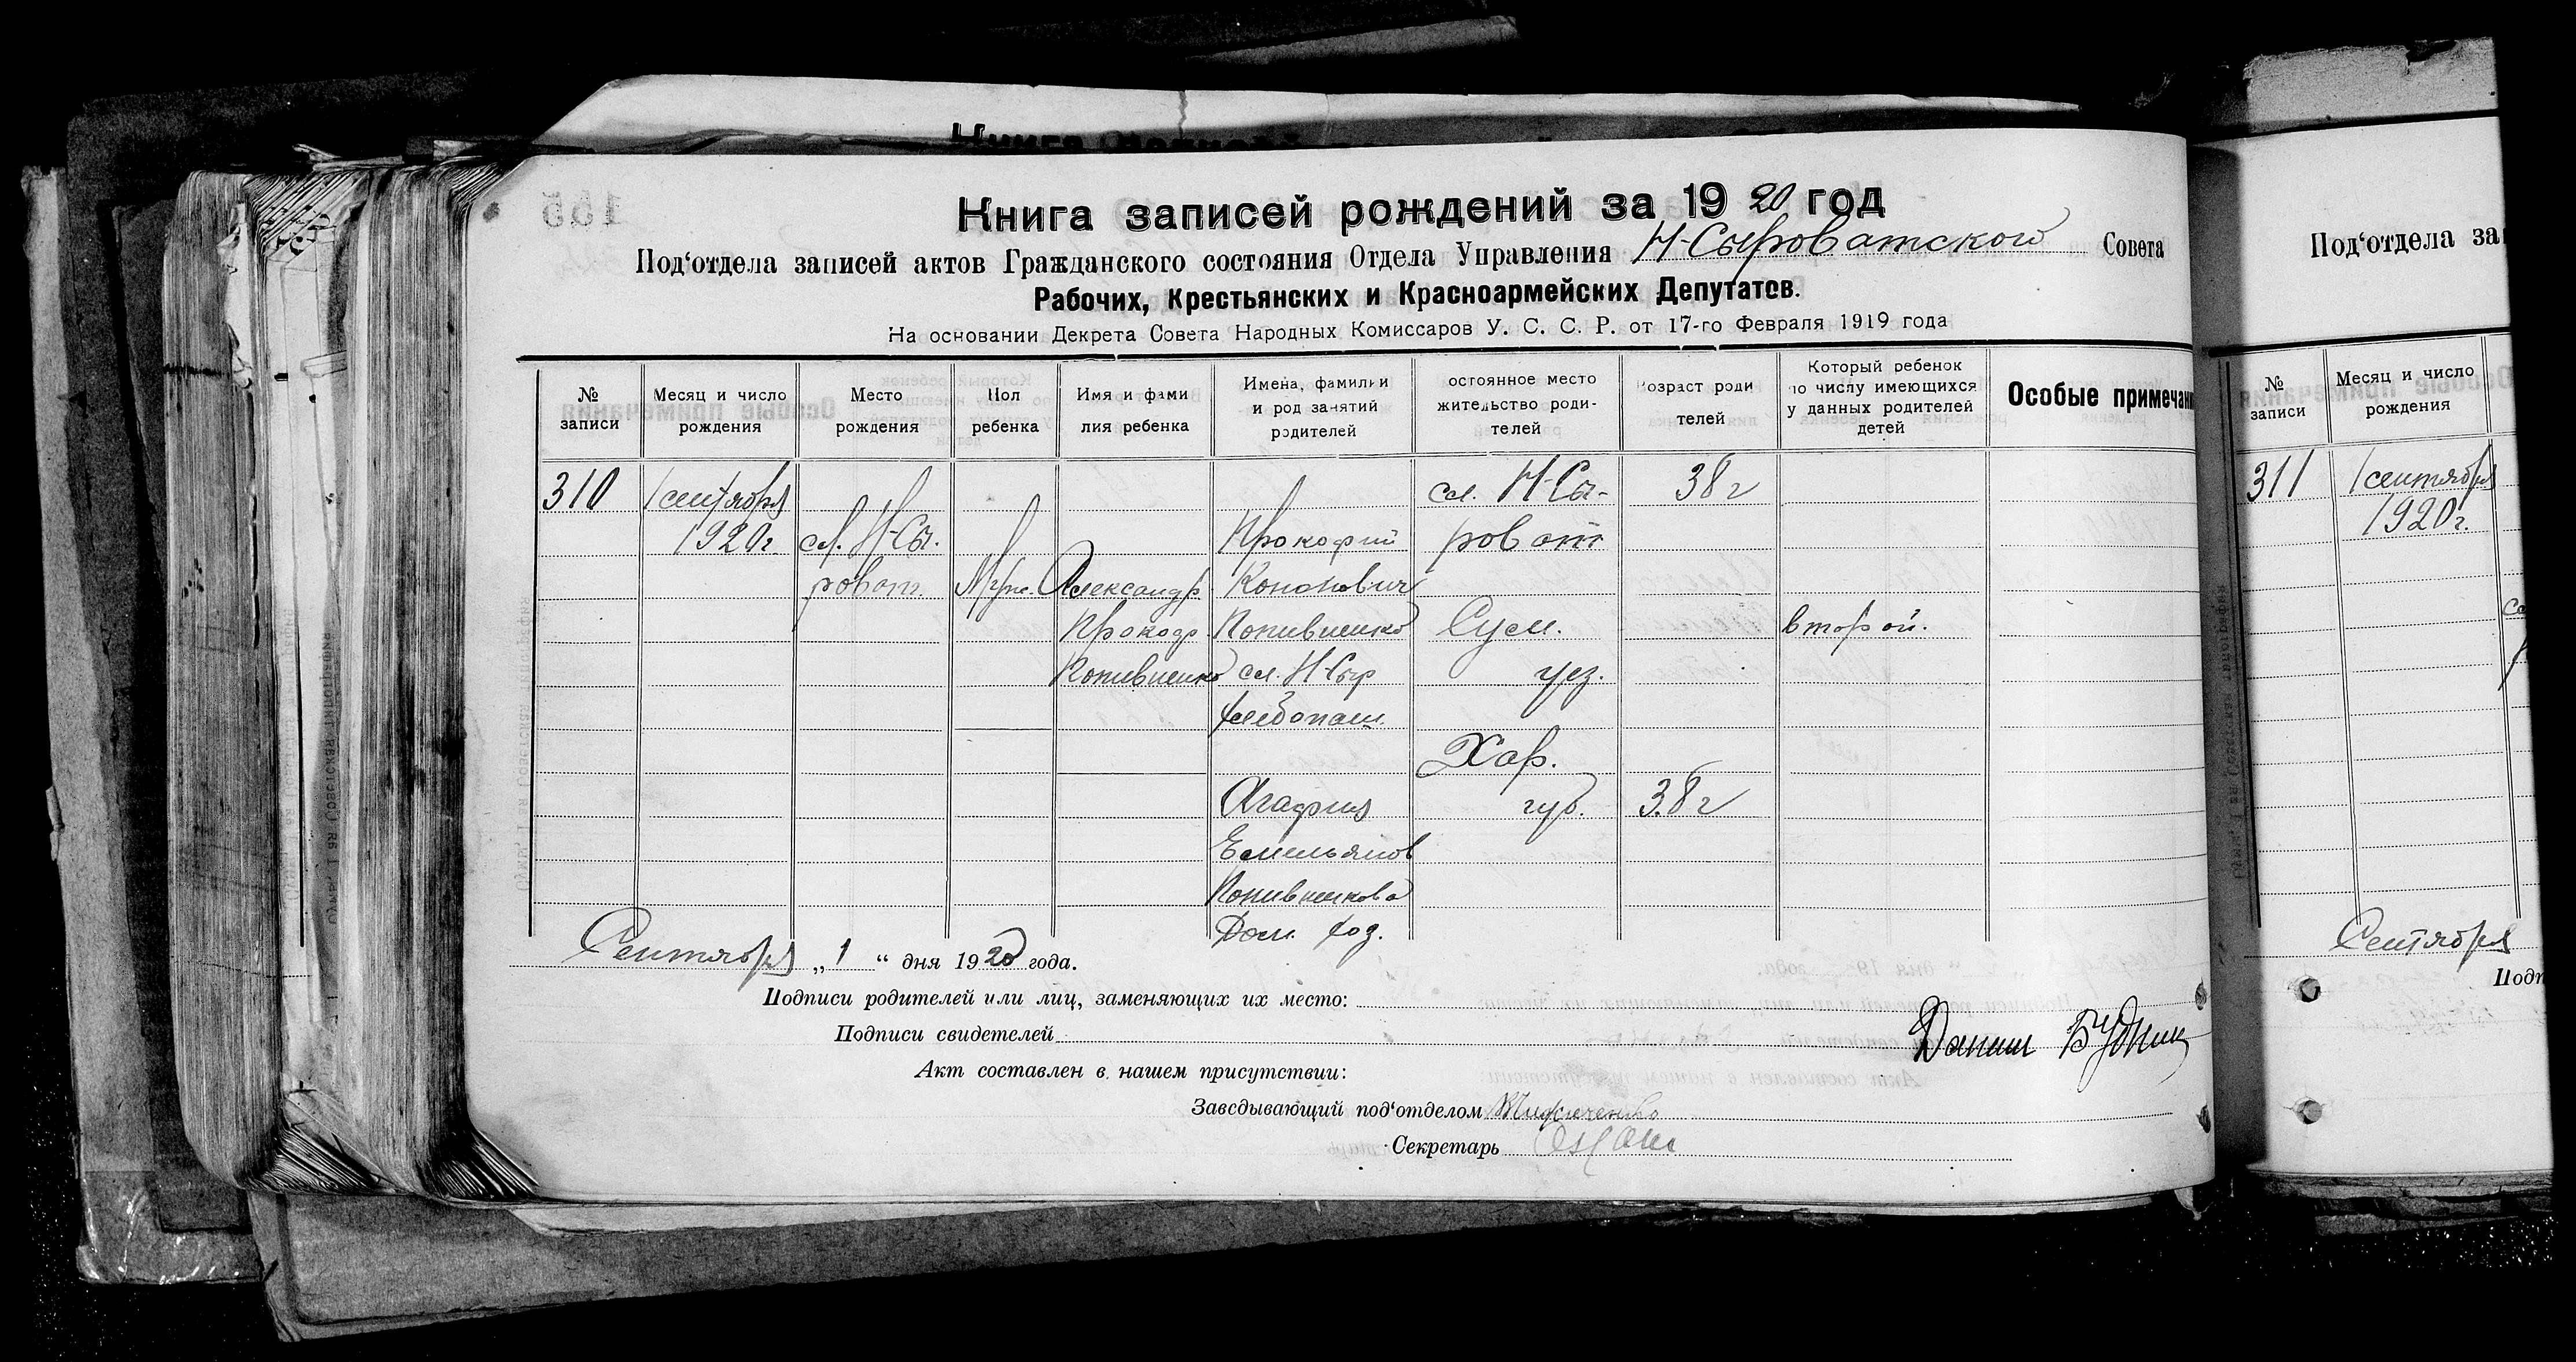 Книга записей рождений за 1920 год
Под'отдела записей актов Гражданского состояния Отдела Управления Н-Сыроватского Совета
Рабочих, Крестьянских и Красноармейских Депутатов.
На основании Декрета Совета Народных Комиссаров У. С. С. Р. от 17-го Февраля 1919 года
№ записи
Месяц и число рождения
Место рождения
Пол ребенка
Имя и фами лия ребенка
Имена, фамилии и род занятий родителей
остоянное место жительство роди- телей
озраст роди телей
Который ребенок по числу имеющихся у данных родителей детей
Особые примечан
310
1 сентября
1920 г.
сл. Н-Сы-
роват.
Муж.
Александр
Прокоф.
Копившенко
Прокофий
Кононович
Копившенко
сл. Н-Сыр
хлебопаш.
Агафия
Емельянов
Копившенкова
Дом. хоз.
сл. Н-Сы-
роват
Сум.
уез.
Хар.
губ.
38 г
38 г
второй.
Сентября „1“ дня 1920 года.
Подписи родителей или лиц, заменяющих их место:
Подписи свидетелей
Данил Будник
Акт составлен в нашем присутствии:
Заведывающий под'отделом
Секретарь
Под'отдела за
№ записи
Месяц и число рождения
311
1 сентября
1920 г.
Сентября
Подп